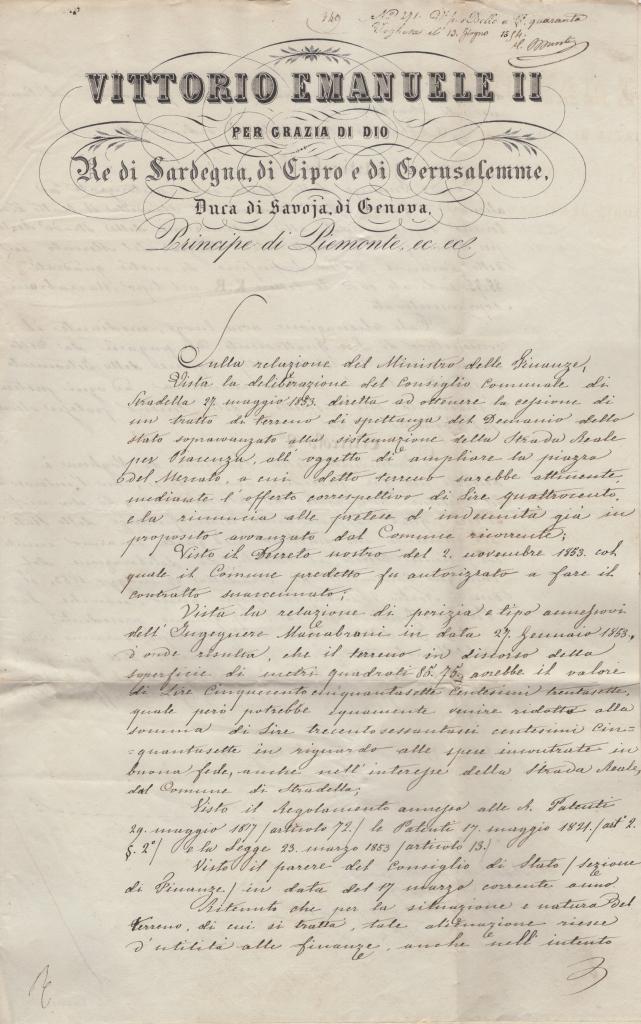 349
N.° 291. D.to per Bollo a C. quaranta
Voghera il 13. Giugno 1854.
VITTORIO EMANUELE II
PER GRAZIA DI DIO
Re di Sardegna, di Cipro e di Gerusalemme,
Duca di Savoja, di Genova,
Principe di Piemonte, ec. ec.
Sulla relazione del Ministro delle Finanze,
Vista la deliberazione del Consiglio Comunale di
Stradella 27. maggio 1853. diretta ad ottenere la cessione di
un tratto di terreno di spettanza del Demanio dello
Stato sopravanzato alla sistemazione della Strada Reale
per Piacenza, all'oggetto di ampliare la piazza
del Mercato, a cui detto terreno sarebbe attinente,
mediante l'offerto correspettivo di Lire quattrocento,
e la rinuncia alle pretese d'indennità già in
proposito avvanzato dal Comune ricorrente;
Visto il Decreto nostro del 2. novembre 1853. col
quale il Comune predetto fu autorizzato a fare il
contratto suaccennato;
Vista la relazione di perizia e tipo annessovi
dell'Ingegnere in data 27. Gennaio 1853.,
d'onde risulta, che il terreno in discorso della
superficie di metri quadrati 85. 75. avrebbe il valore
di Lire Cinquecentocinquantasette centesimi trentasette,
quale però potrebbe equamente venire ridotto alla
somma di Lire trecentosessantasei centesimi cin=
=quantasette in riguardo alle spese incontrate in
buona fede, anche nell'interesse della Strada Reale,
dal Comune di Stradella;
Visto il Regolamento annesso alle R. Patenti
29. maggio 1817 /articolo 72./ le Patenti 17. maggio 1821. /art.° 2.
§. 2.°/ e la Legge 23. marzo 1853 /articolo 13./
Visto il parere del Consiglio di Stato /sezione
di Finanze/ in data del 17 marzo corrente anno
Ritenuto che per la situazione e natura del
terreno, di cui si tratta, tale alienazione riesce
d'utilità alle finanze, anche nell'intento